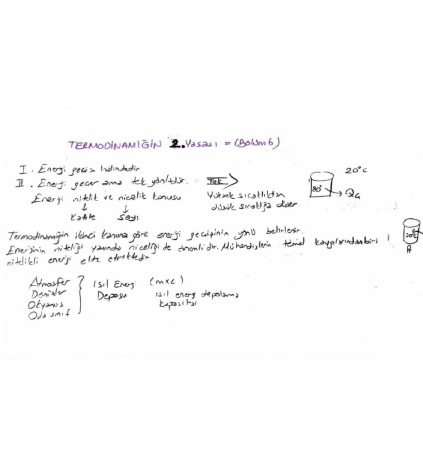 TERMODİNAMİĞİN 2. Yasası = (Bölüm 6)
I. Energi geçiş halindedir.
II. Energi geçer ama tek yönlüdür.
Tek
Yüksek sıcaklıktan
düşük sıcaklığa doğru
20°C
80°
Energi nitelik ve nicelik konusu
Kalite Sayı
Termodinamiğin ikinci kanuna göre energi geçişinin yönü belirlenir.
Enerjinin niteliği yanında niceliği de önemlidir. Mühendislerin temel kaygılarından biri
nitelikli energi elde etmektedir.
20°C
A
Atmosfer
Denizler
Okyanus
Oda sınıf
Isıl Energi (mxc)
Deposu ısıl energi depolama
kapasitesi